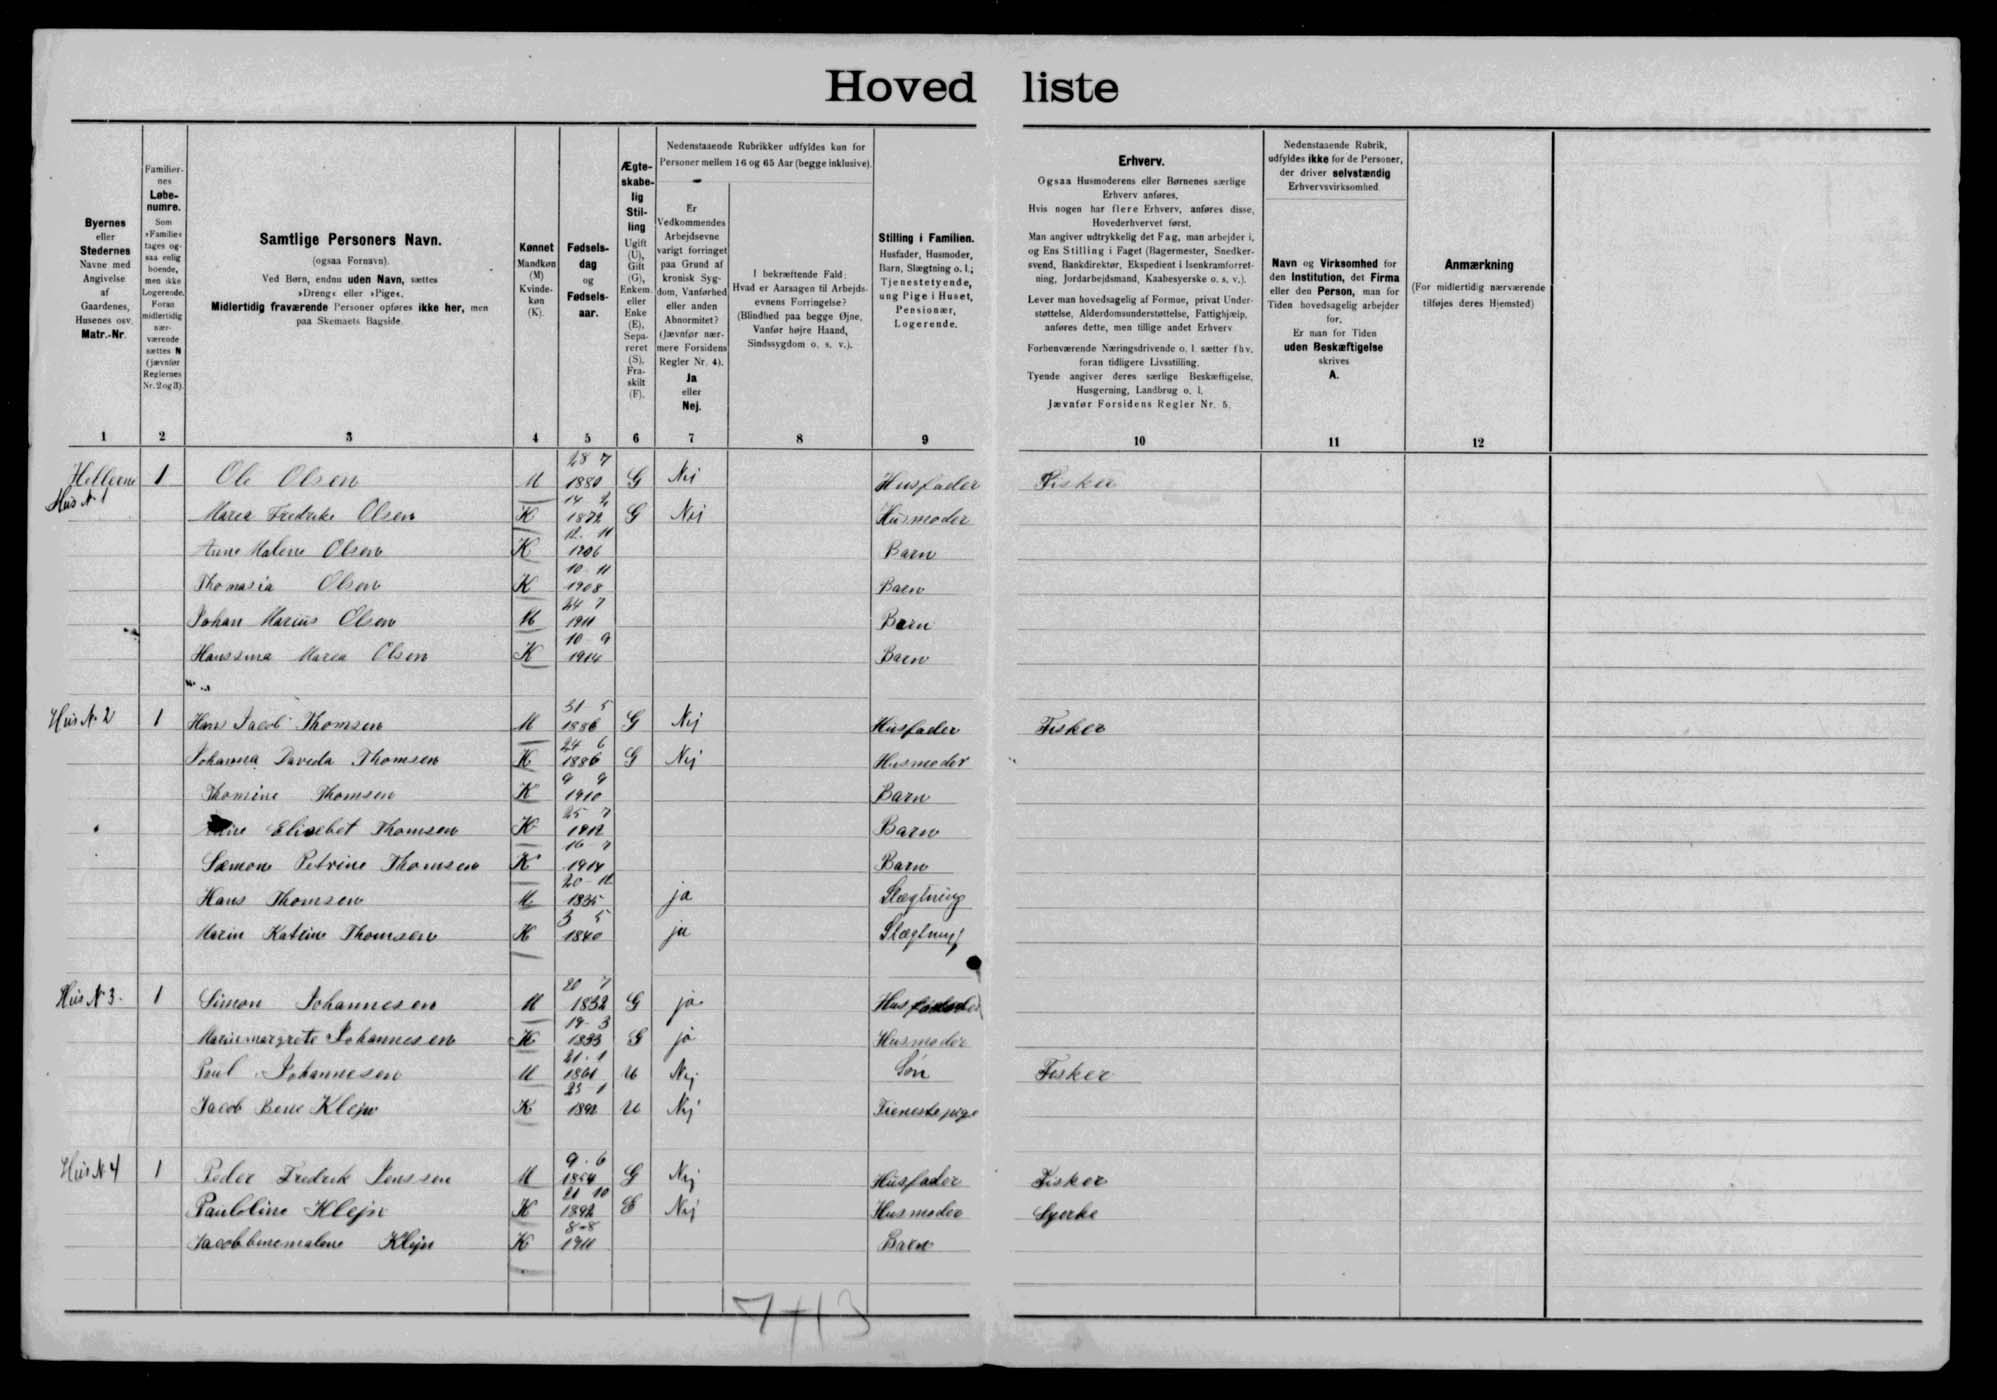 Hovedliste
Byernes eller Stedernes Navne med Angivelse af Gaardenes, Husenes osv. Matr.-Nr.
Familiernes Løbenumre. Som »Familie« tages ogsaa enlig boende, men ikke Logerende. Foran midlertidig nærværende sættes N (jævnfør Reglernes Nr. 2 og 3).
Samtlige Personers Navn. (ogsaa Fornavn). Ved Børn, endnu uden Navn, sættes »Dreng« eller »Pige«. Midlertidig fraværende Personer opføres ikke her, men paa Skemaets Bagside.
Kønnet Mandkøn (M) Kvindekøn (K).
Fødselsdag og Fødselsaar.
Ægteskabelig Stilling Ugift (U), Gift (G), Enkem. eller Enke (E), Separeret (S), Fraskilt (F).
Nedenstaaende Rubrikker udfyldes kun for Personer mellem 16 og 65 Aar (begge inklusive).
Er Vedkommendes Arbejdsevne varigt forringet paa Grund af kronisk Sygdom, Vanførhed eller anden Abnormitet? (Jævnfør nærmere Forsidens Regler Nr. 4). Ja eller Nej.
I bekræftende Fald: Hvad er Aarsagen til Arbejdsevnens Forringelse? (Blindhed paa begge Øjne, Vanfør højre Haand, Sindssygdom o. s. v.).
Stilling i Familien. Husfader, Husmoder, Barn, Slægtning o. l.; Tjenestetyende, ung Pige i Huset, Pensionær, Logerende.
Erhverv.
Ogsaa Husmoderens eller Børnenes særlige Erhverv anføres.
Hvis nogen har flere Erhverv, anføres disse, Hovederhvervet først.
Man angiver udtrykkelig det Fag, man arbejder i, og Ens Stilling i Faget (Bagermester, Snedkersvend, Bankdirektør, Ekspedient i Isenkramforretning, Jordarbejdsmand, Kaabesyerske o. s. v.).
Lever man hovedsagelig af Formue, privat Understøttelse, Alderdomsunderstøttelse, Fattighjælp, anføres dette, men tillige andet Erhverv
Forhenværende Næringsdrivende o. l. sætter fhv. foran tidligere Livsstilling.
Tyende angiver deres særlige Beskæftigelse, Husgerning, Landbrug o. l.
Jævnfør Forsidens Regler Nr. 5.
Nedenstaaende Rubrik, udfyldes ikke for de Personer, der driver selvstændig Erhvervsvirksomhed.
Navn og Virksomhed for den Institution, det Firma eller den Person, man for Tiden hovedsagelig arbejder for.
Er man for Tiden uden Beskæftigelse skrives A.
Anmærkning (For midlertidig nærværende tilføjes deres Hjemsted)
1 2 3 4 5 6 7 8 9 10 11 12
Hellerne 1 Ole Olsen M 28 7 1880 G Nej Husfader Fisker
Hus N 1
Marea Fredrike Olsen K 14 2 1872 G Nej Husmoder
Anne Malene Olsen K 12. 11 1906 Barn
Thomasia Olsen K 10 11 1908 Barn
Johan Marius Olsen M 24 7 1911 Barn
Hanssina Marea Olsen K 10 9 1914 Barn
Hus N. 2 1 Hans Jacob Thomsen M 31 5 1886 G Nej Husfader Fisker
Johanna Daveda Thomsen K 24 6 1886 G Nej Husmoder
Thomine Thomsen K 9 9 1910 Barn
Elisebet Thomsen K 25 7 1912 Barn
Sæmone Petrine Thomsen K 1914 Barn
Hans Thomsen M 20-11 1835 ja Slægtning
Marin Katrine Thomsen K 3 5 1840 ja Slægtning
Hus N 3. 1 Simon Johannesen M 20 7 1832 G ja Husfader
Marinmargrete Johannesen K 19-3 1833 G ja Husmoder
Poul Johannesen M 21. 1 1861 U Nej Søn Fisker
Jacob Bene Klejn K 25 1 1892 U Nej Tienestepige
Hus N. 4 1 Peder Fredrik Jenssen M 9. 6 1854 G Nej Husfader Fisker
Paulline Klejn K 21 10 1892 E Nej Husmoder Syerke
Jacobbenemalene Klejn K 8-8 1911 Barn
7+13